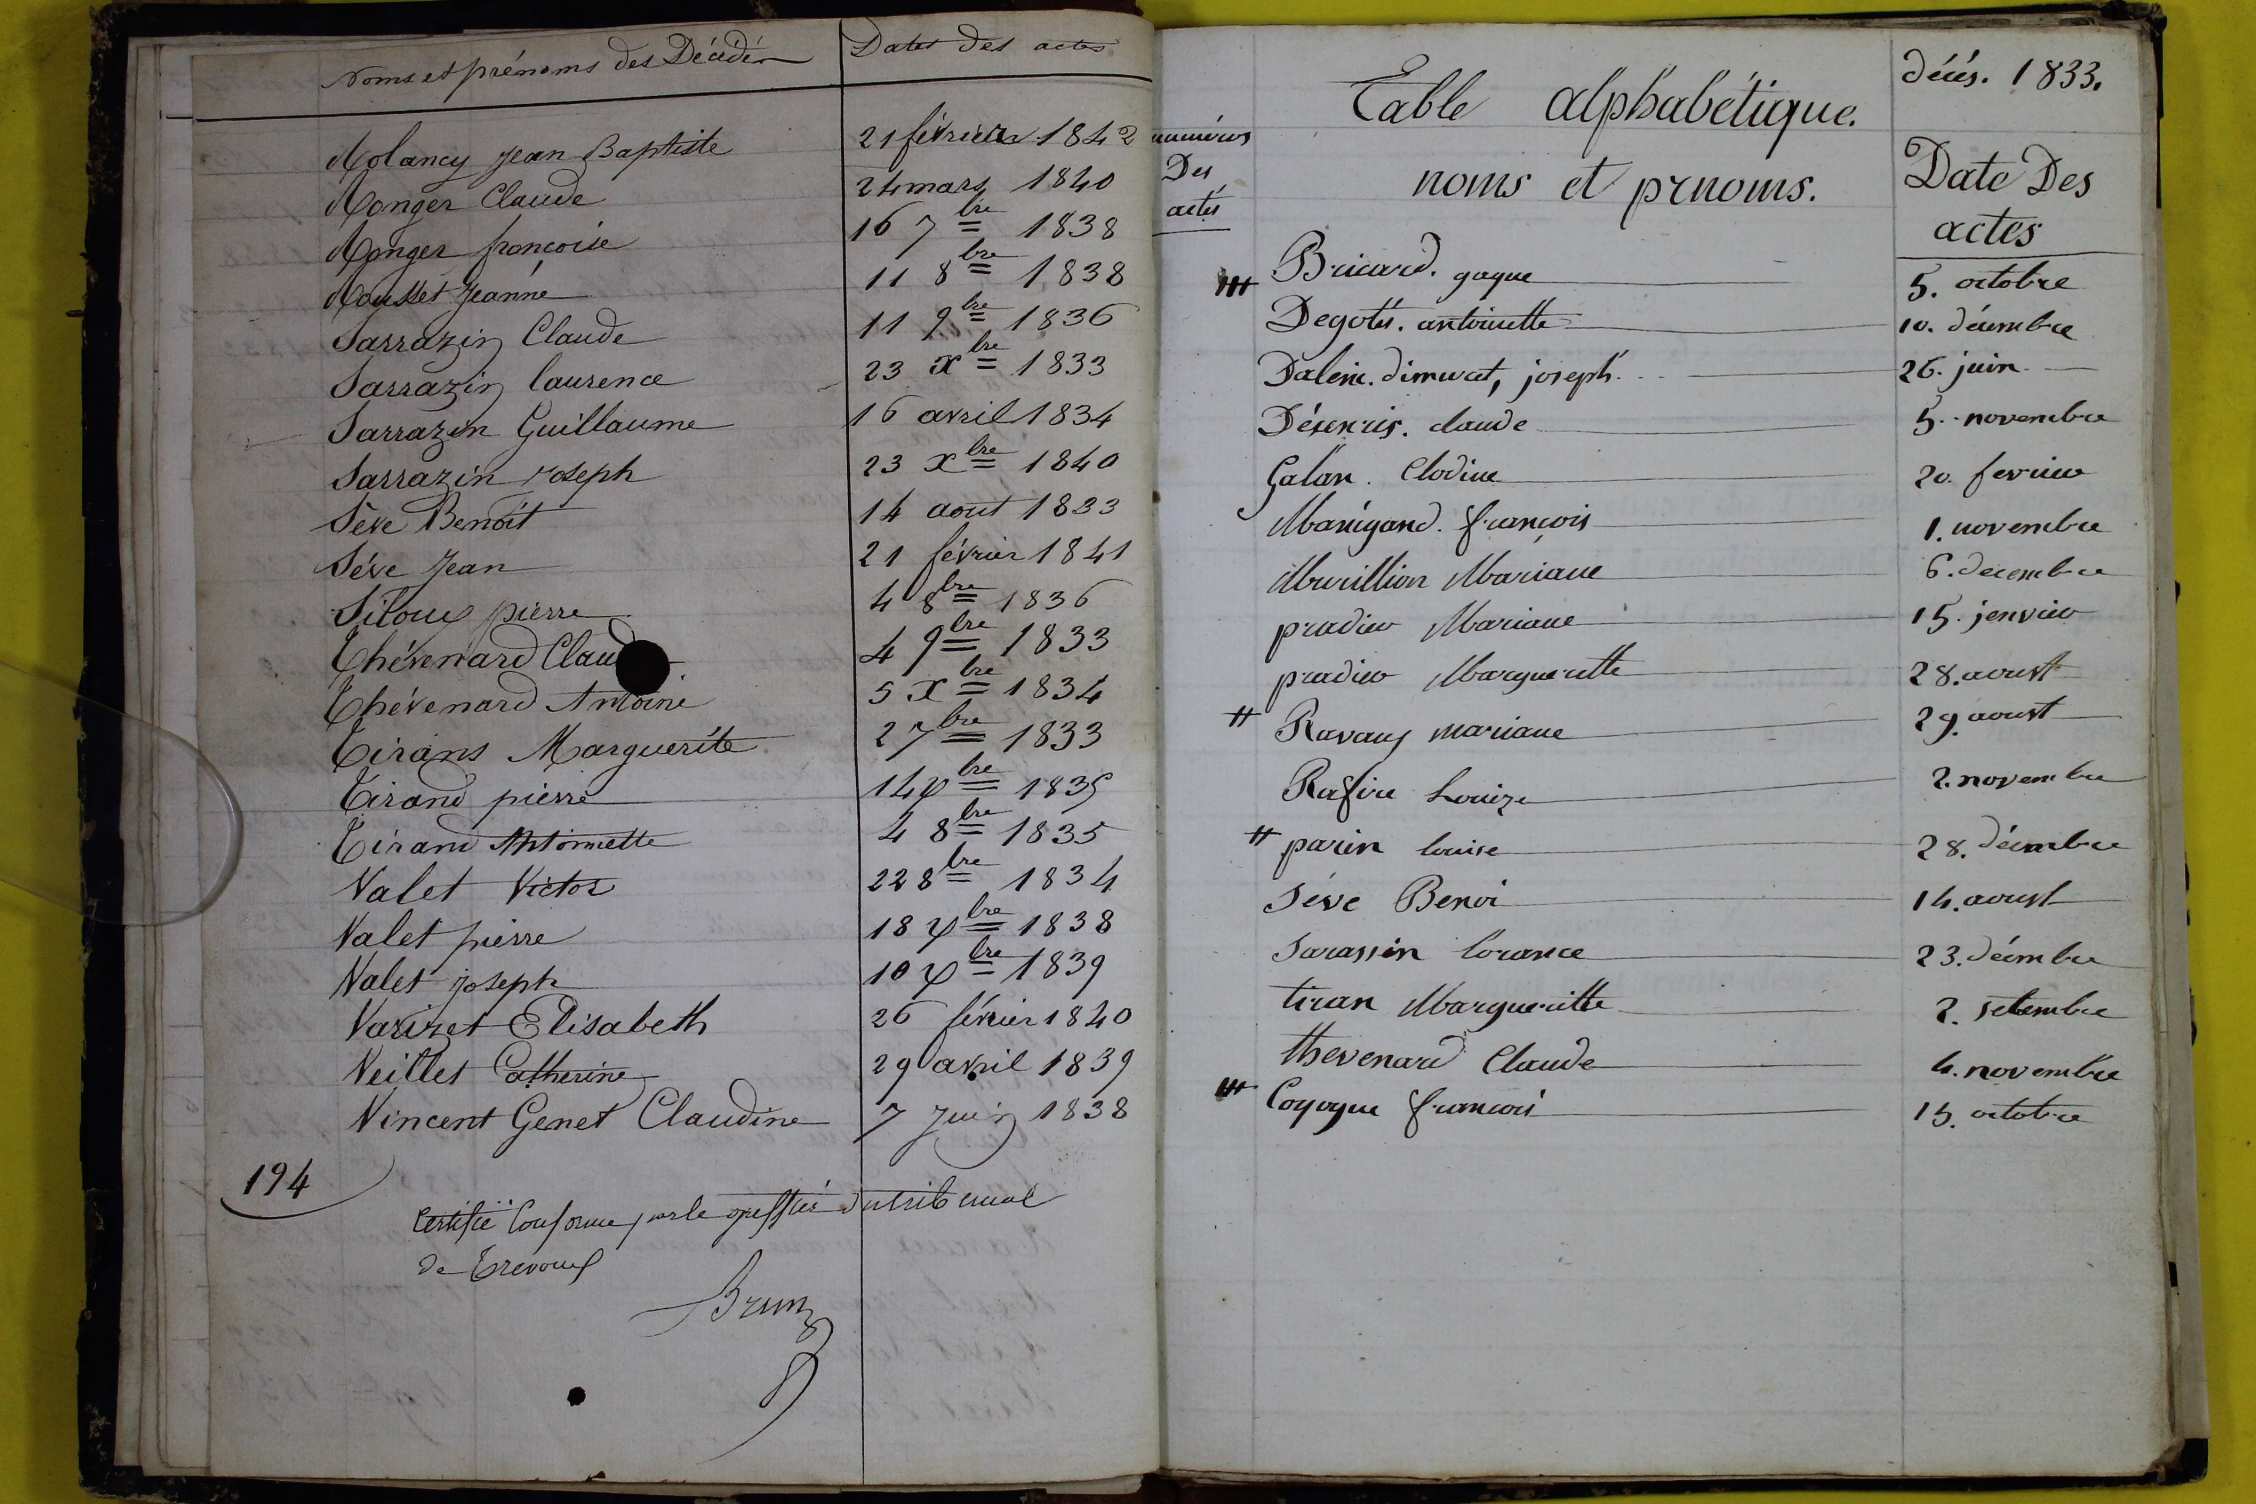 Noms et prénoms des Décédés Dates des actes
Rolancy Jean Baptiste 21 février 1842
Ronger Claude 24 mars 1840
Ronger françoise 16 7bre 1838
Rousset Jeanne 11 8bre 1838
Sarrazin Claude 11 9bre 1836
Sarrazin laurence 23 Xbre 1833
Sarrazin Guillaume 16 avril 1834
Sarrazin Joseph 23 Xbre 1840
Sève Benoit 14 aout 1833
Séve Jean 21 février 1841
Siloux pierre 4 8bre 1836
Thévenard Claud 4 9bre 1833
Thévenard Antoine 5 Xbre 1834
Tirans Marguerite 2 7bre 1833
Tirand pierre 14 bre 1835
Tirand Antoinette 4 8bre 1835
Valet Victor 22 8bre 1834
Valet pierre 18 bre 1838
Valet joseph 10 bre 1839
Varizet Elisabeth 26 février 1840
Veillet Catherine 29 avril 1839
Vincent Genet Claudine 7 Juin 1838
194
Certifié Conforme par le greffier du tribunal
de Trevoux
Brun
décés. 1833.
Table alphabétique.
numéros
Des
actes
noms et prnoms.
Date Des
actes
Bricard. gaque 5. octobre
Degotés. antoinette 10. décembre
joseph 26. juin
claude 5. novembre
Galan. Clodine 20. fevrier
Manigand. françois 1. novembre
Murillion Mariane 6. decembre
pradier Mariane 15. jenvier
pradier Margueritte 28. aoust
Ravaux mariane 29. aoust
Rafire Louize 2. novembre
parin louise 28. décembre
Séve Benoi 14. aoust
Sarassin lorance 23. décembre
tiran Margueritte 2. setembre
thevenard Claude 4. novembre
francois 15. octobre